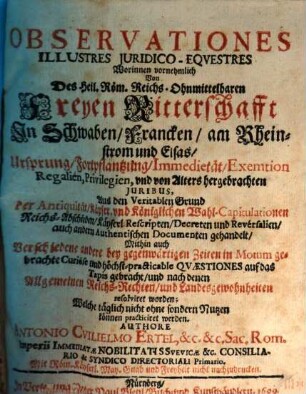 OBSERVATIONES
ILLUSTRES JURIDICO-EQVESTRES
Worinnen vornehmlich
Von
Des Heil. Röm. Reichs-Ohnmittelbaren
Freyen Ritterschafft
In Schwaben/Francken/am Rhein-
strom und Elsas/
Ursprung/Fortpflantzung/Immedietät/Exemtion
Regalien, Privilegien, und von Alters hergebrachten
JURIBUS,
Aus den Veritablen Grund
Der Antiquität/Käyser- und Königlichen Wahl-Capitulationen
Reichs-Abschiden/Käyserl. Rescripten/Decreten und Reversalien/
auch andern Authentischen Documenten gehandelt/
Mithin auch
Verschiedene andere bey gegenwärtigen Zeiten in Motum ge-
brachte Curiose und höchst-practicable QVÆSTIONES auf das
Tapis gebracht/und nach denen
Allgemeinen Reichs-Rechten/und Landesgewohnheiten
resolviret worden;
Welche täglich nicht ohne sondern Nutzen
können practiciret werden.
AUTHORE
ANTONIO GVILIELMO ERTEL, &c. &c, Sac. Rom.
Imperii IMMEDIATÆ NOBILITATIS SVEVICÆ &c. CONSILIA-
RIO & SYNDICO DIRECTORIALI Primario,
Mit Röm. Käyserl. May. Gnad und Freyheit nicht nachzudrucken.
Nürnberg/